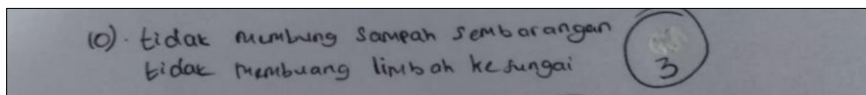 10). tidak mumbung sampah sembarangan
tidak membuang limbah ke sungai
3